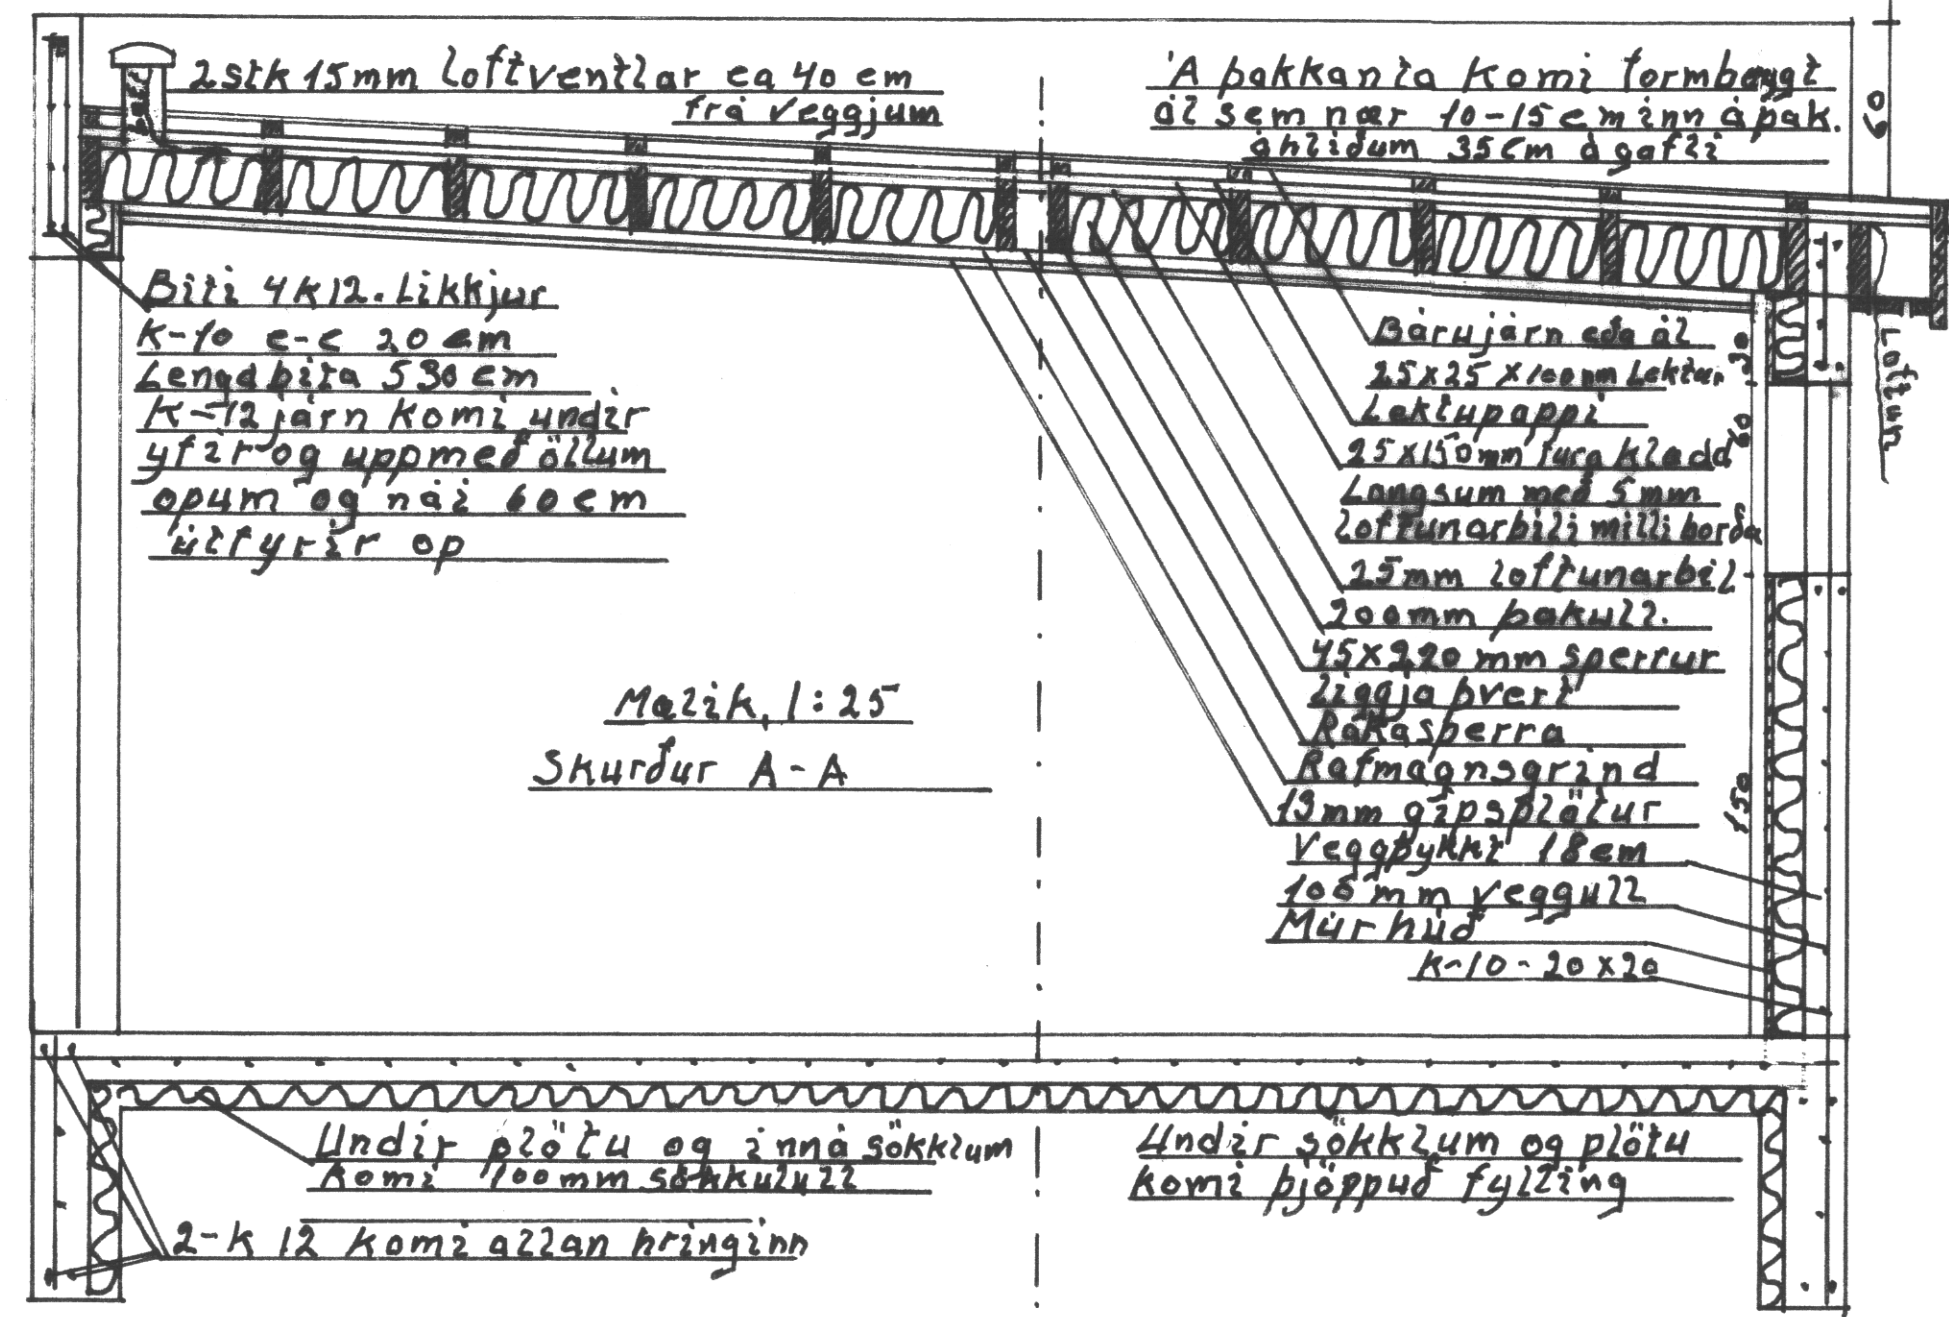 2stk 15mm loftventlar ca 40 cm
frá veggjum
Á þakkanta komi formbeygt
ál sem nær 10-15 cm inn á þak.
á hliðum 35cm á gafli
60
Biti 4K12. Likkjur
K-10 c-c 20 cm
Lengd bita 530 cm
K-12 járn komi undir
yfir og uppmeð öllum
opum og nái 60 cm
útfyrir op
Bárujárn eða ál
25x25 x100mm Lektur
Lektupappi
25x150mm fura kladd
Langsum með 5mm
loftunarbili milli borða
25mm loftunarbil
200mm þakull.
45x220 mm sperrur
liggja þvert
Rakasperra
Rafmagnsgrind
13mm gipsplötur
Veggþykkt 18cm
100mm veggull
Múrhúð
K-10-20x20
30
60
150
Loftun
Mælik, 1:25
Skurður A-A
Undir plötu og inná sökklum
komi 100mm sökkulull
2-K 12 komi allan hringinn
Undir sökklum og plötu
komi þjöppuð fylling